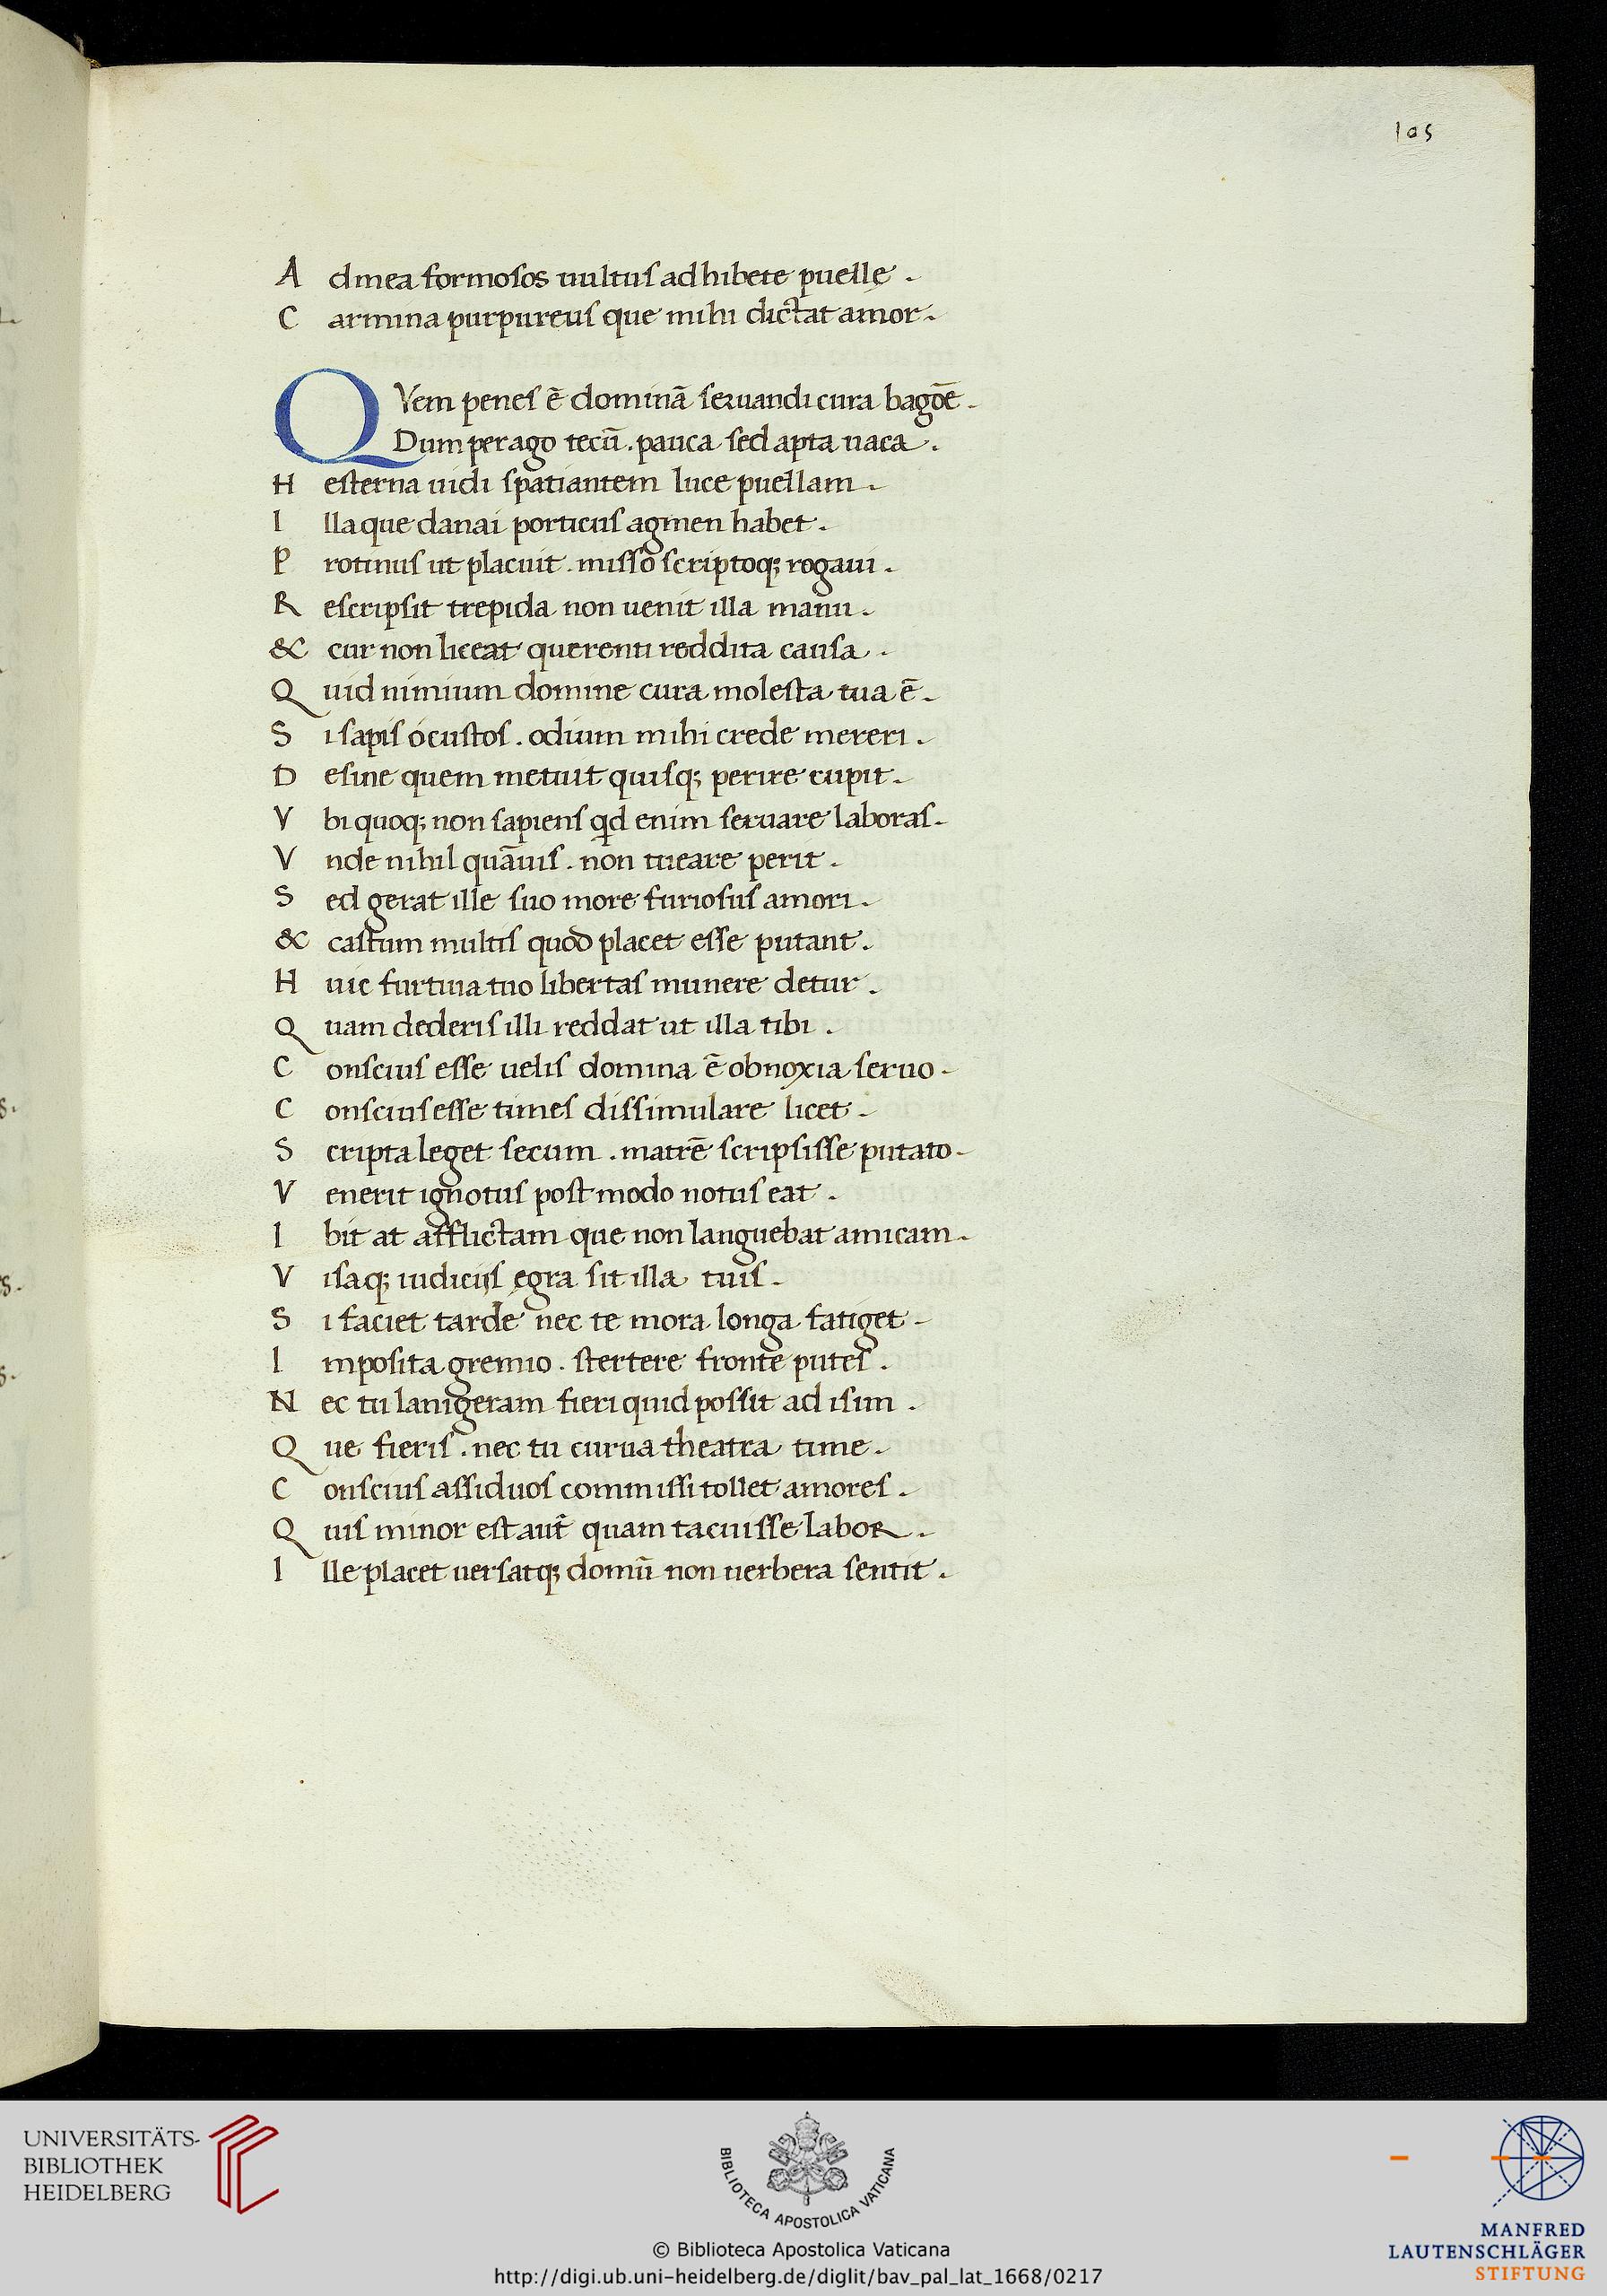 105
A dmea formosos uultus adhibete puellę .
C armina purpureus que mihi dictat amor .
QVem penes ē dominā seruandi cura bagōe .
Dum perago tecū . pauca sed apta uaca .
H esterna uidi spatiantem luce puellam .
I lla que danai porticus agmen habet .
P rotinus ut placuit . misso scriptoq; rogaui .
R escripsit trepida non uenit illa manu .
& cur non liceat querenti reddita causa .
Q uid nimium domine cura molesta tua ē .
S i sapis o custos . odium mihi crede mereri .
D esine quem metuit quisq; perire cupit .
V bi quoq; non sapiens qd enim seruare laboras .
V nde nihil quāuis . non tueare perit .
S ed gerat ille suo more furiosus amori .
& castum multis quod placet esse putant .
H uic furtiua tuo libertas munere detur .
Q uam dederis illi reddat ut illa tibi .
C onscius esse uelis domina ē obnoxia seruo .
C onscius esse times dissimulare licet .
S cripta leget secum . matrē scripsisse putato .
V enerit ignotus post modo notus eat .
I bit at afflictam que non languebat amicam .
V isaq; iudicijs ęgra sit illa tuis .
S i faciet tarde nec te mora longa fatiget .
I mposita gremio . stertere fronte putes .
N ec tu lanigeram fieri quid possit ad isim .
Q ue fieris . nec tu curua theatra time .
C onscius assiduos commissi tollet amores .
Q uis minor est aut̄ quam tacuisse labor .
I lle placet uersatq; domū non uerbera sentit .
UNIVERSITÄTS-
BIBLIOTHEK
HEIDELBERG
BIBLIOTECA APOSTOLICA VATICANA
© Biblioteca Apostolica Vaticana
http://digi.ub.uni-heidelberg.de/diglit/bav_pal_lat_1668/0217
MANFRED
LAUTENSCHLÄGER
STIFTUNG